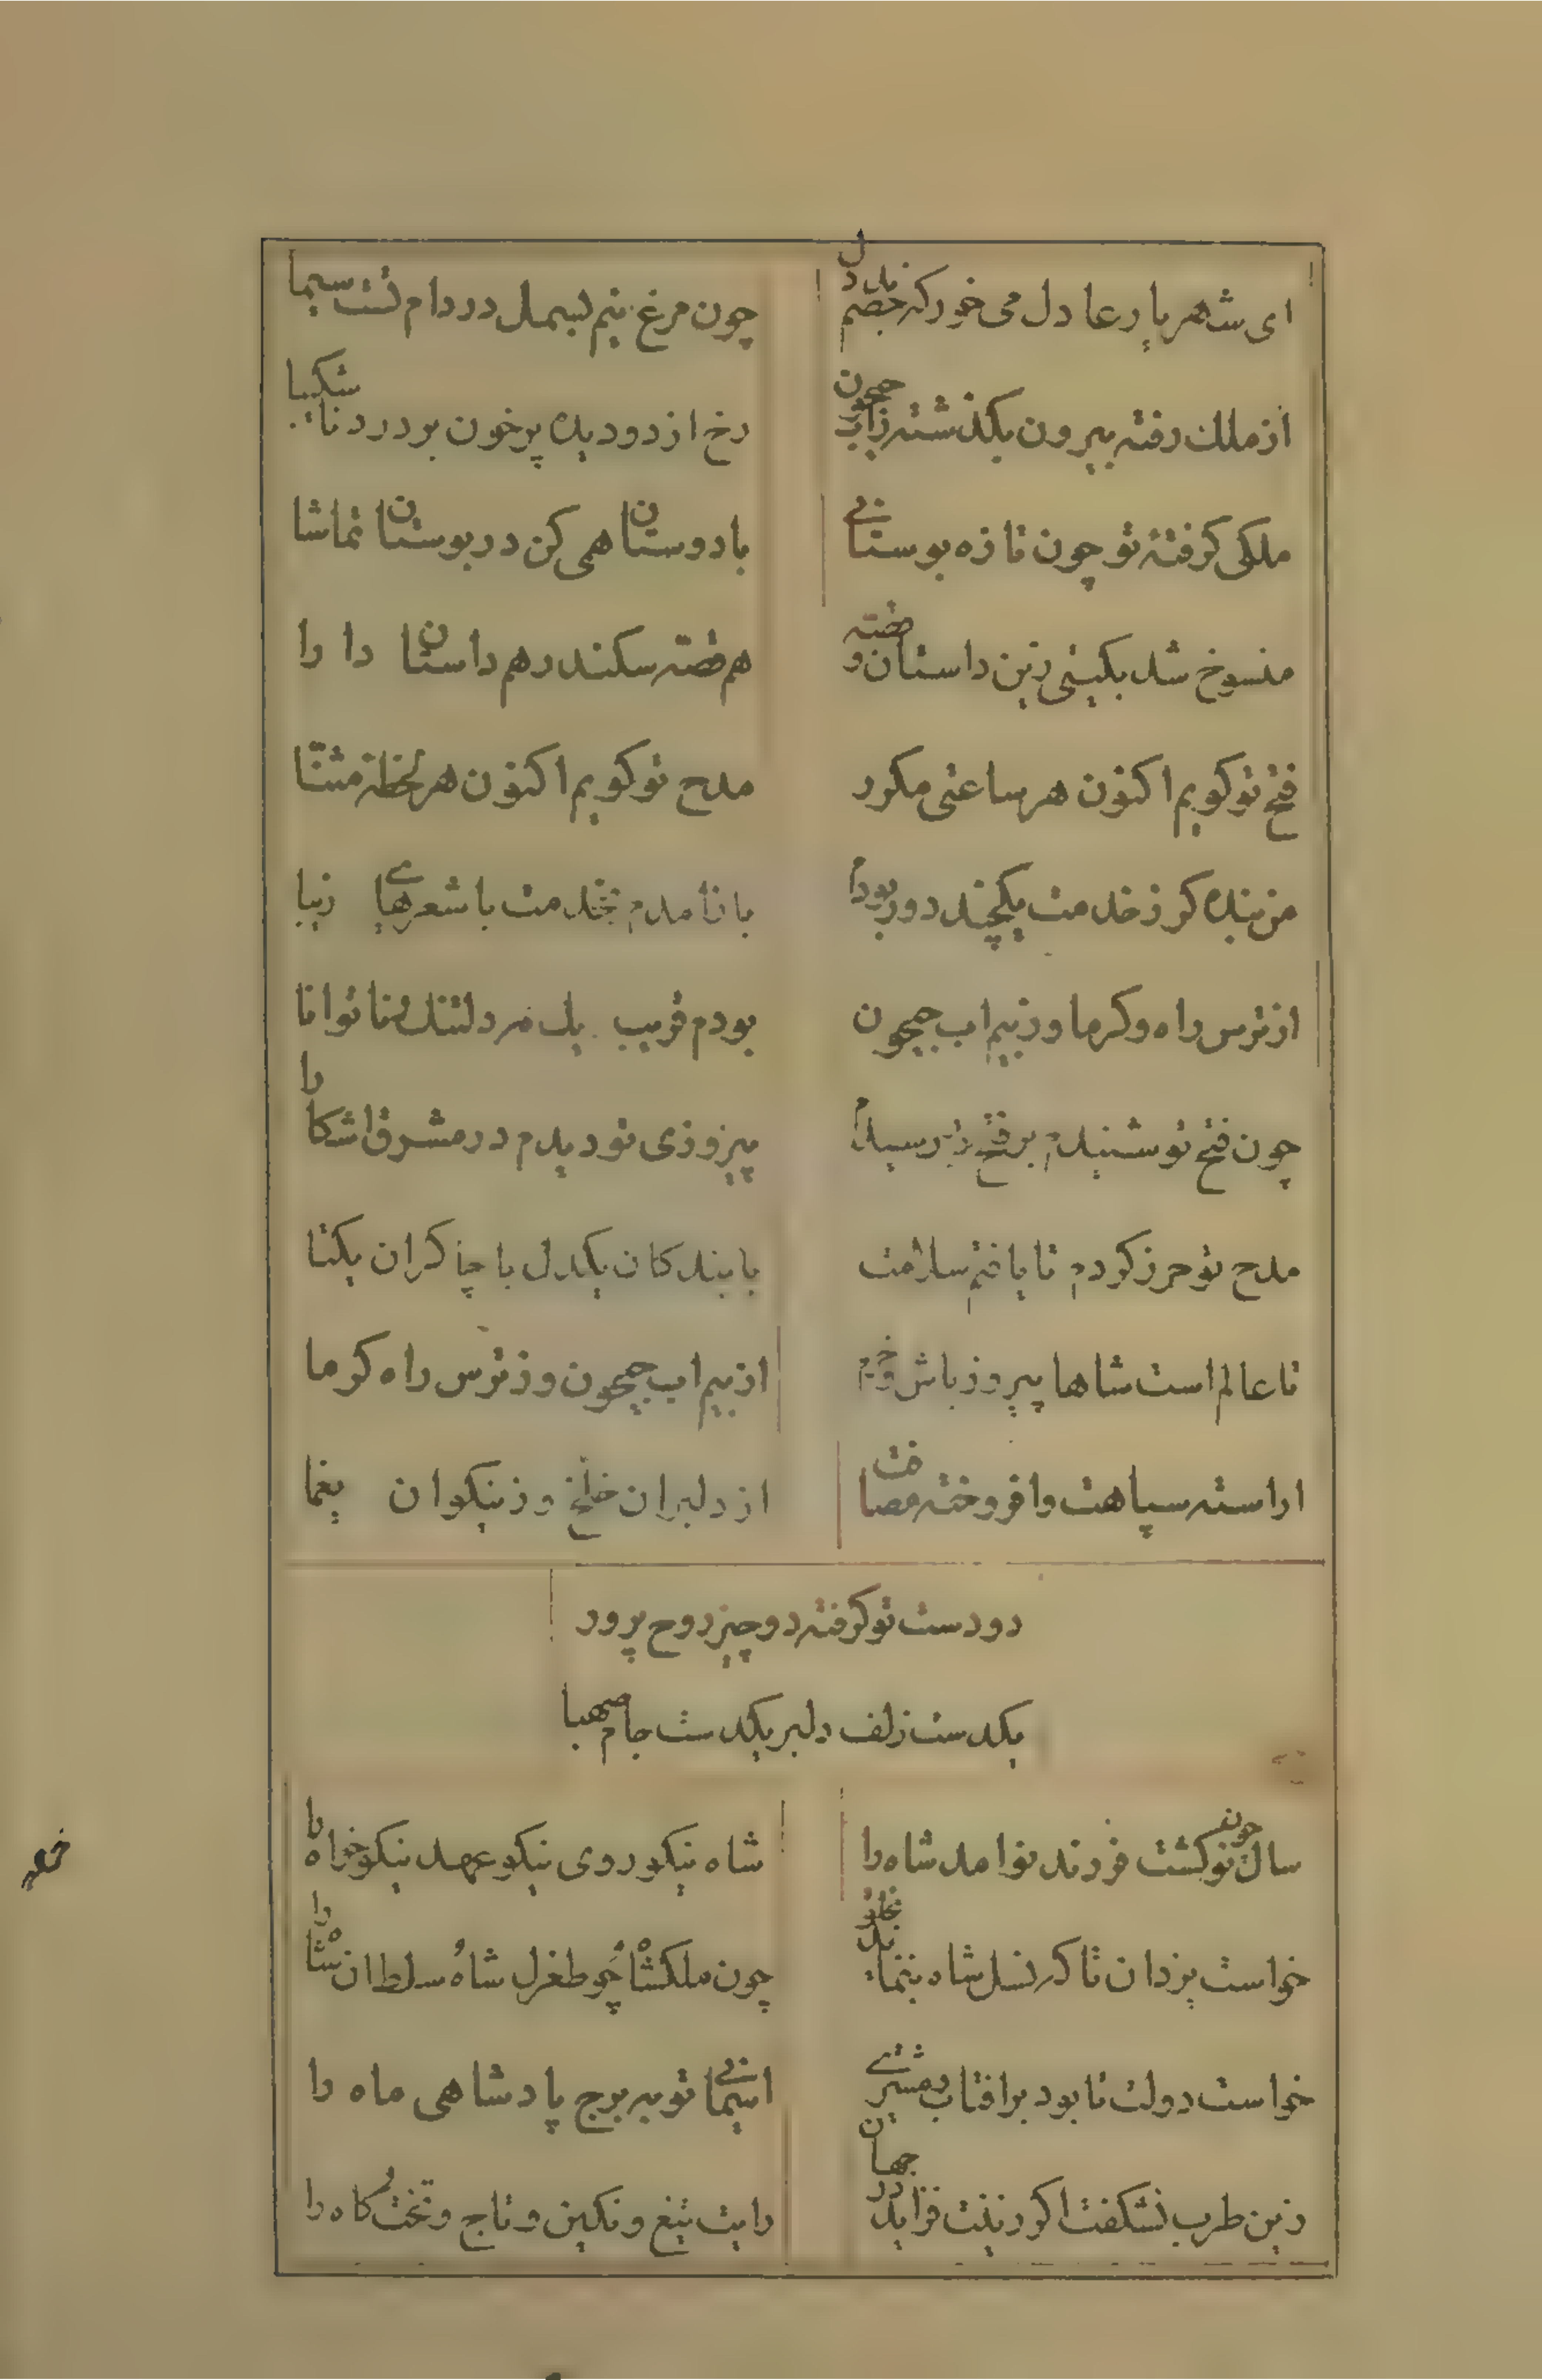 ای شهریار عادل می خور که خصم بددل
چون مرغ نیم بسمل در دام تست
از ملك رفته بیرون بكذشته زاب جیحون
رخ از دو دیده پرخون پر درد ناشكیبا
ملكی كرفتهٔ تو چون تازه بوستانی
با دوستان همی كن در بوستان تماشا
منسوخ شد بكیتی زین داستان و قصّه
هم قصّه سكندر هم داستان دارا
فتح تو كویم اكنون هر ساعتی مكرر
مدح تو كویم اكنون هر لحظهٔ مثنّا
من بنده كز خدمت یكچند دور بودم
بازآمدم بخدمت با شعرهای زیبا
از ترس راه و كرما وز بیم اب جیحون
بودم قریب یك مه دلتنك و ناتوانا
چون فتح تو شنیدم بر فتح رسیدم
پیروزی تو دیدم در مشرق اشكارا
مدح تو حرز كردم تا یافتم سلامت
با بندكان یكدل با چاكران یكتا
تا عالم است شاها پیروز باش و خرم
از بیم اب جیحون وز ترس راه كرما
اراسته سپاهت وافروخته مصافت
از دلبران خلّخ وز نیكوان یغما
دو دست تو كرفته دو چیز روح پرور
یكدست زلف دلبر یكدست جام صهبا
سال نو كشت چون فرزند نو امد شاه را
شاه نیكو روی نیكو عهد نیكو خواه را
خواست یزدان تا كه نسل شاه بنماید بخلق
چون ملكشاه چو طغرل شاه سلطان شاه را
خواست دولت تا بود بر افتاب و مشتری
اسمانی تو به برج پادشاهی ماه را
زین طرب نشكفت اكر زینت فزاید در جهان
رایت تیغ و نكین و تاج و تخت و كاه را